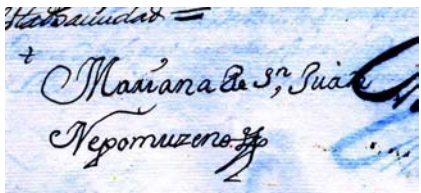 Mariana de Sn, Juan
Nepomuzeno